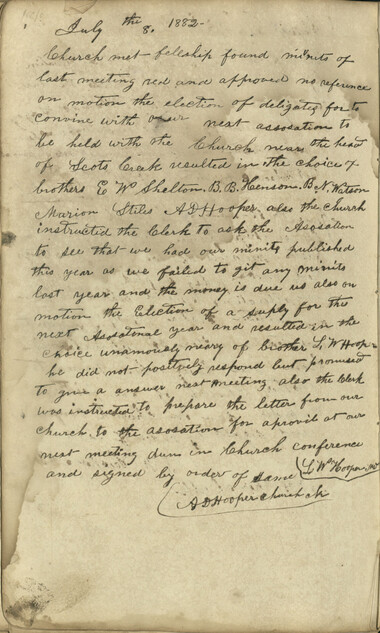 July the 8. 1882-
Church met fellship found minits of
last meeting red and approved no reference
on motion the election of deligates for to
convine with our next assosation to
be held with the Church near the head
of Scots Creek resulted in the choice of
brothers E W Shelton. B. B. Henson. B. N. Kitson
Marion Stiles A D Hooper also the Church
instructed the Clerk to ask the Asosation
to see that we had our minits published
this year as we failed to git any minits
last year and the money is due us also on
motion the Election of a suply for the
next Asosational year and resulted in the
choice unamously of Brother L W Hooper
he did not positively respond but promised
to give a answer next meeting also the Clerk
was instructed to prepare the letter from our
church to the asosation for aprovil at our
next meeting dun in Church conference
and signed by order of same L Wm Hooper Mo
A D Hooper Church Clk